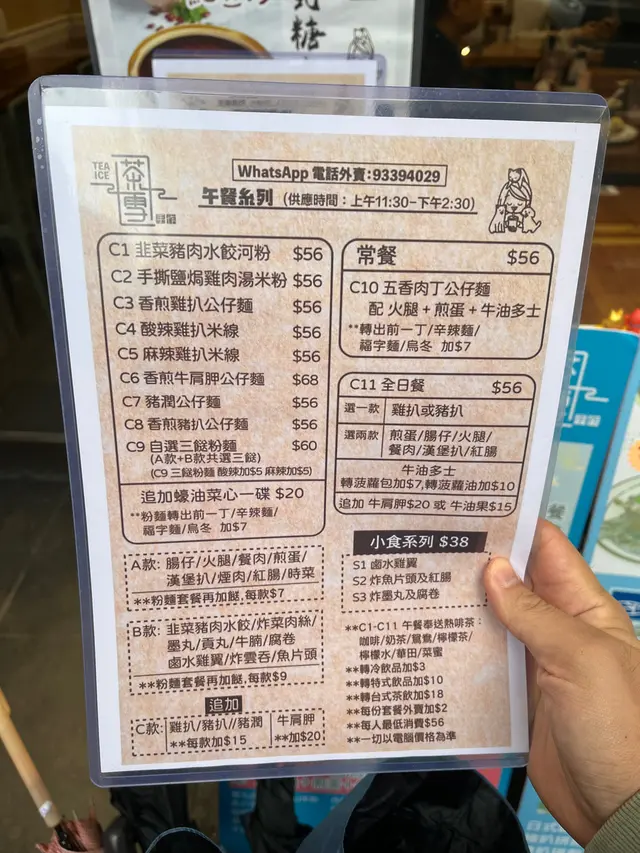 糖
TEA
ICE
茶
雪
WhatsApp 電話外賣:93394029
午餐系列 (供應時間：上午11:30-下午2:30)
C1 韮菜豬肉水餃河粉 $56
C2 手撕鹽焗雞肉湯米粉 $56
C3 香煎雞扒公仔麵 $56
C4 酸辣雞扒米線 $56
C5 麻辣雞扒米線 $56
C6 香煎牛肩胛公仔麵 $68
C7 豬潤公仔麵 $56
C8 香煎豬扒公仔麵 $56
C9 自選三餸粉麵 $60
(A款+B款共選三餸)
(C9 三餸粉麵 酸辣加$5 麻辣加$5)
追加蠔油菜心一碟 $20
**粉麵轉出前一丁/辛辣麵/
福字麵/烏冬 加$7
A款: 腸仔/火腿/餐肉/煎蛋/
漢堡扒/煙肉/紅腸/時菜
**粉麵套餐再加餸,每款$7
B款: 韮菜豬肉水餃/炸菜肉絲/
墨丸/貢丸/牛腩/腐卷
鹵水雞翼/炸雲吞/魚片頭
**粉麵套餐再加餸,每款$9
追加
C款: 雞扒/豬扒//豬潤
**每款加$15
牛肩胛
**加$20
常餐 $56
C10 五香肉丁公仔麵
配 火腿+煎蛋+牛油多士
**轉出前一丁/辛辣麵/
福字麵/烏冬 加$7
C11 全日餐 $56
選一款 雞扒或豬扒
選兩款 煎蛋/腸仔/火腿/
餐肉/漢堡扒/紅腸
牛油多士
轉菠蘿包加$7,轉菠蘿油加$10
追加 牛肩胛$20 或 牛油果$15
小食系列 $38
S1 鹵水雞翼
S2 炸魚片頭及紅腸
S3 炸墨丸及腐卷
**C1-C11 午餐奉送熱啡茶：
咖啡/奶茶/鴛鴦/檸檬茶/
檸檬水/華田/菜蜜
**轉冷飲品加$3
**轉特式飲品加$10
**轉台式茶飲加$18
**每份套餐外賣加$2
**每人最低消費$56
**一切以電腦價格為準